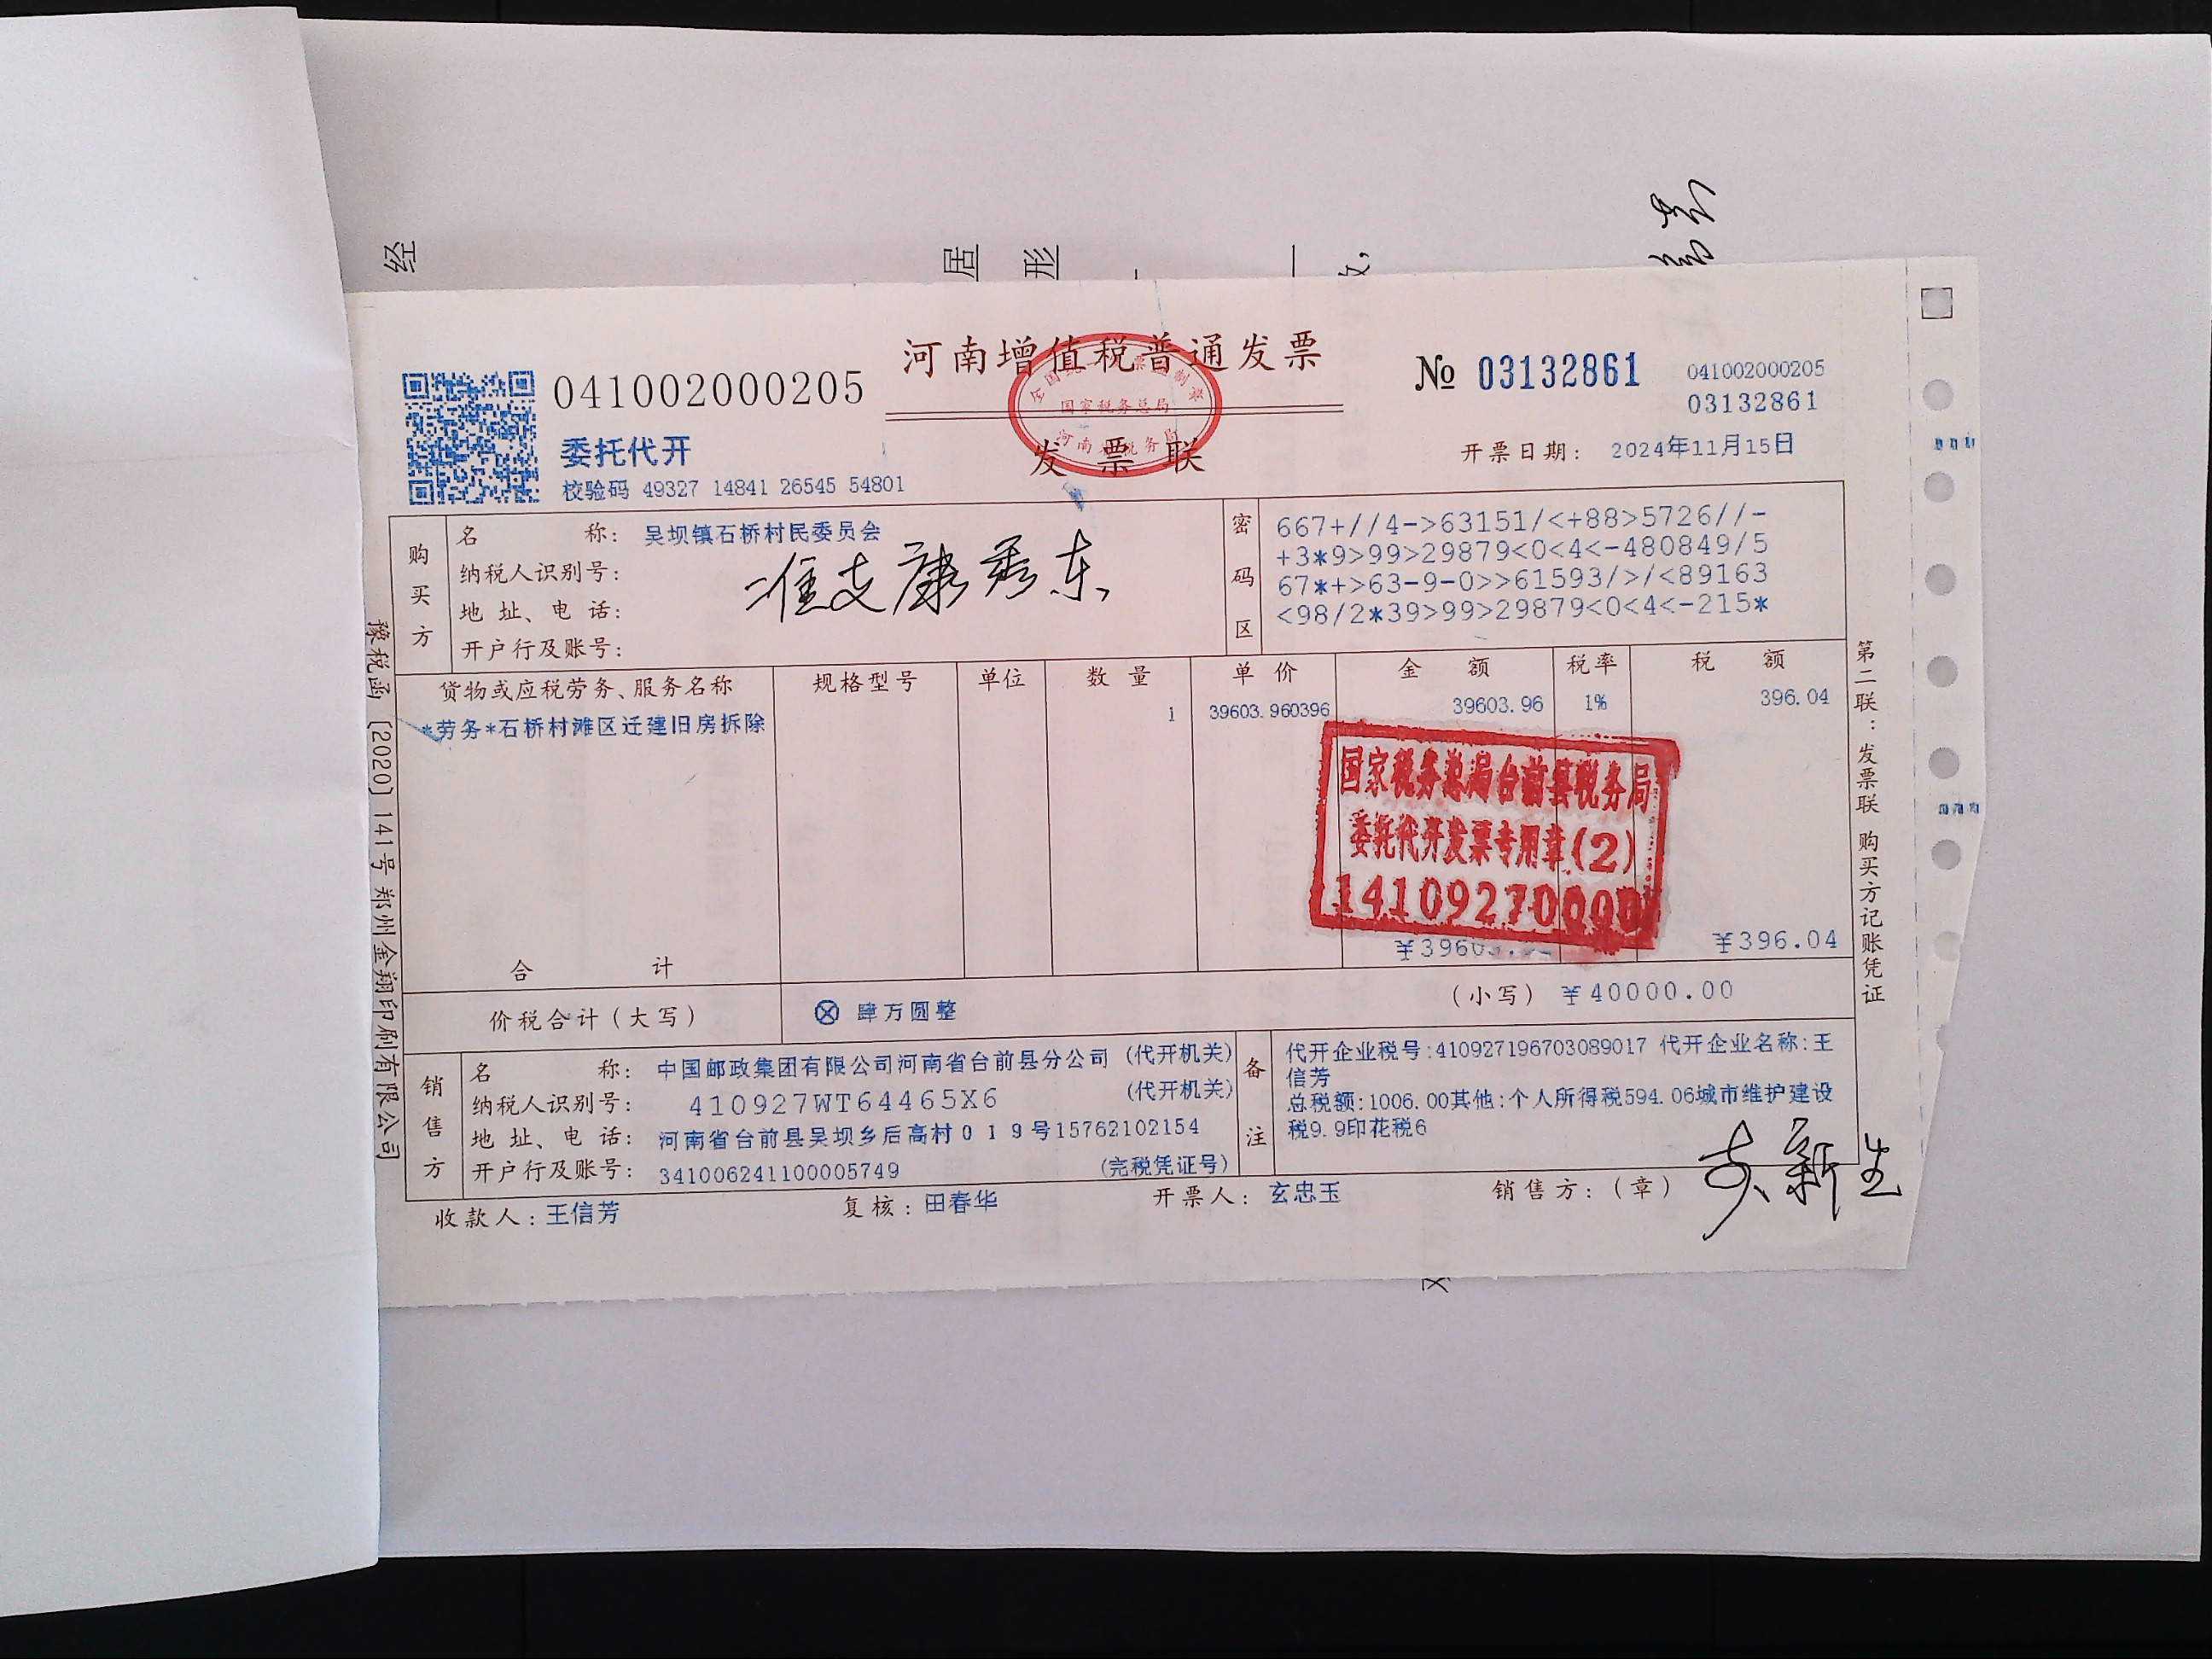 经
居
形
河南增值税普通发票
041002000205
№ 03132861
041002000205
03132861
委托代开
国家税务总局
发票联
开票日期： 2024年11月15日
校验码 49327 14841 26545 54801
购买方
名称： 吴坝镇石桥村民委员会
纳税人识别号：
地址、电话：
开户行及账号：
准支康秀东
密码区
667+//4->63151/<+88>5726//-
+3*9>99>29879<0<4<-480849/5
67*+>63-9-0>>61593/>/<89163
<98/2*39>99>29879<0<4<-215*
货物或应税劳务、服务名称 规格型号 单位 数量 单价 金额 税率 税额
*劳务*石桥村滩区迁建旧房拆除 1 39603.960396 39603.96 1% 396.04
国家税务总局台前县税务局
委托代开发票专用章(2)
合计 ¥396.04
价税合计（大写） ⊗ 肆万圆整 （小写） ¥40000.00
销售方
名称： 中国邮政集团有限公司河南省台前县分公司 (代开机关)
纳税人识别号： 410927WT64465X6 (代开机关)
地址、电话： 河南省台前县吴坝乡后高村019号15762102154
开户行及账号： 341006241100005749 (完税凭证号)
备注
代开企业税号:410927196703089017 代开企业名称:王
信芳
总税额:1006.00其他:个人所得税594.06城市维护建设
税9.9印花税6
收款人：王信芳 复核：田春华 开票人：玄忠玉 销售方：（章）
新生
豫税函〔2020〕141号 郑州金翔印刷有限公司
第二联：发票联 购买方记账凭证